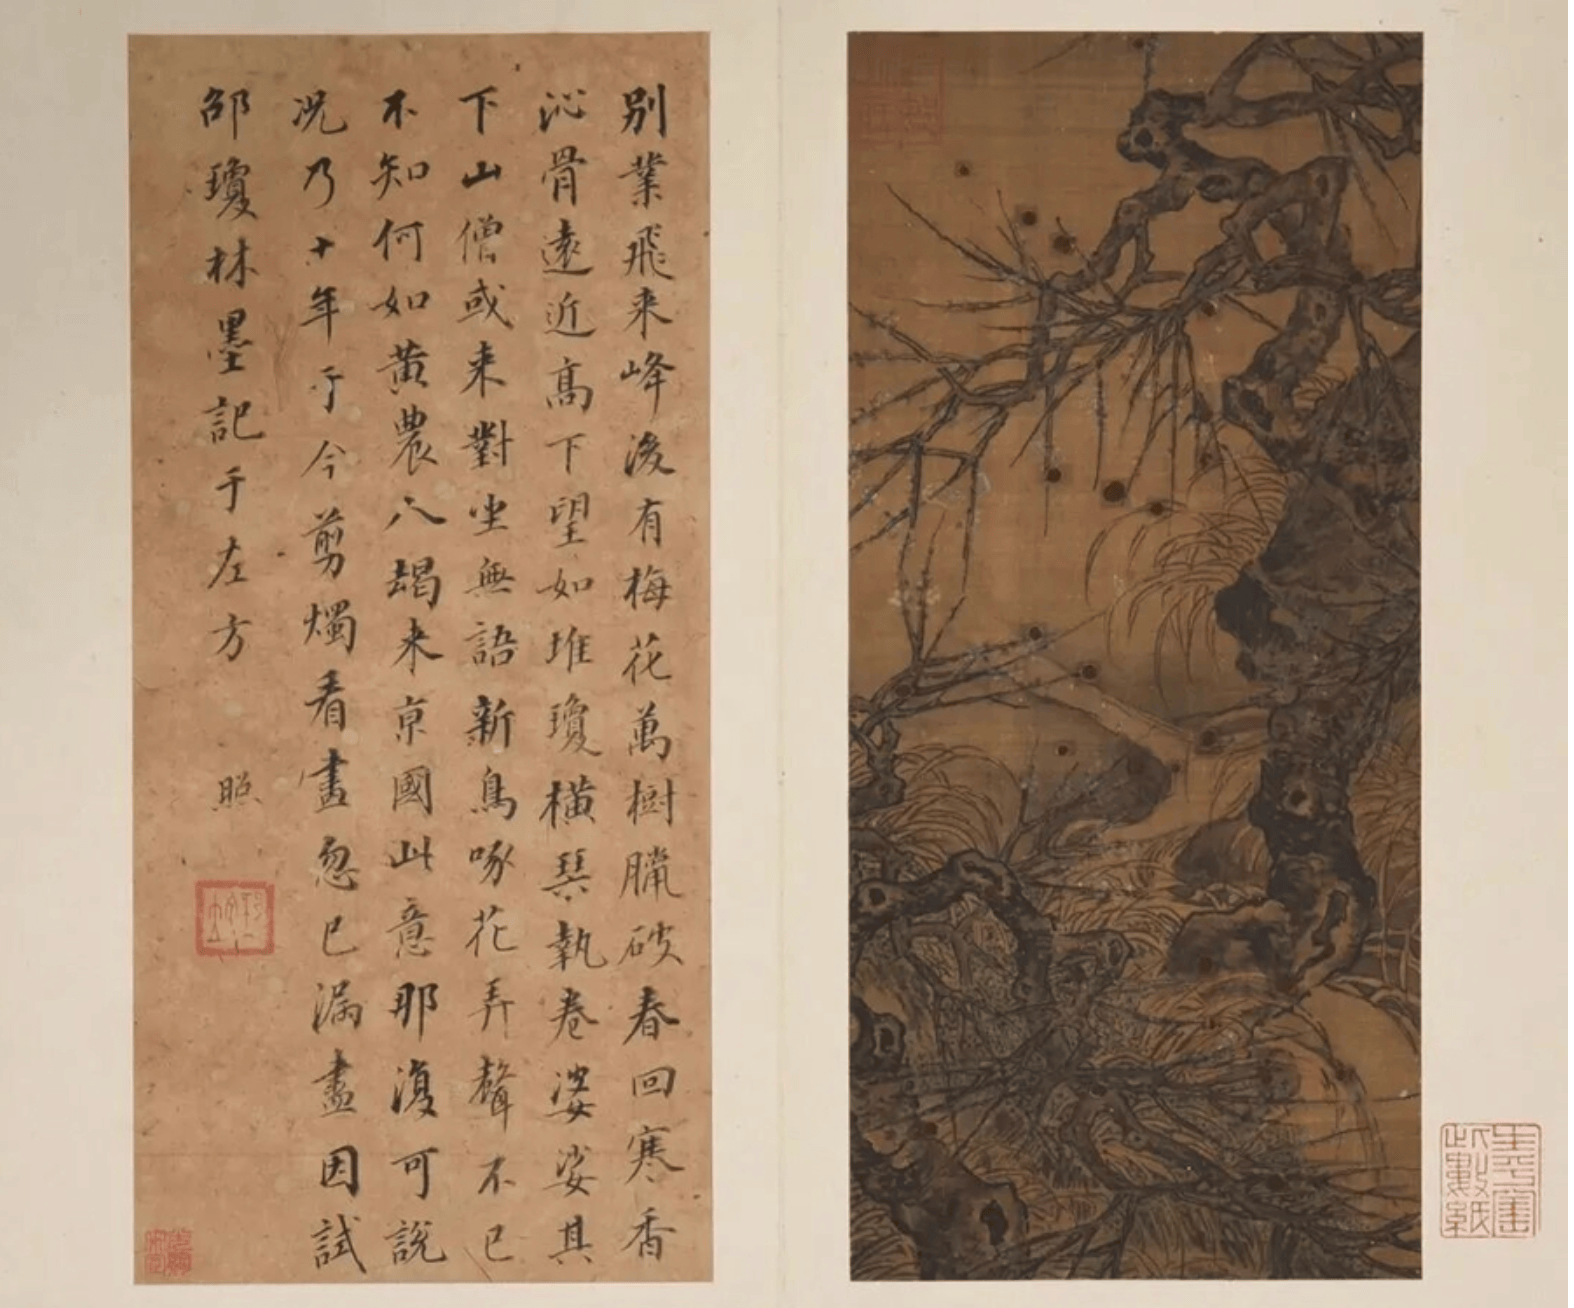 別業飛来峰後有梅花萬樹臘破春回寒香
沁骨遠近高下望如堆瓊橫琴執卷婆娑其
下山僧或来對坐無語新鳥啄花弄聲不已
不知何如黃農人朅来京國此意那復可說
況乃十年于今剪燭看畫忽已漏盡因試
邵瓊林墨記于左方 照